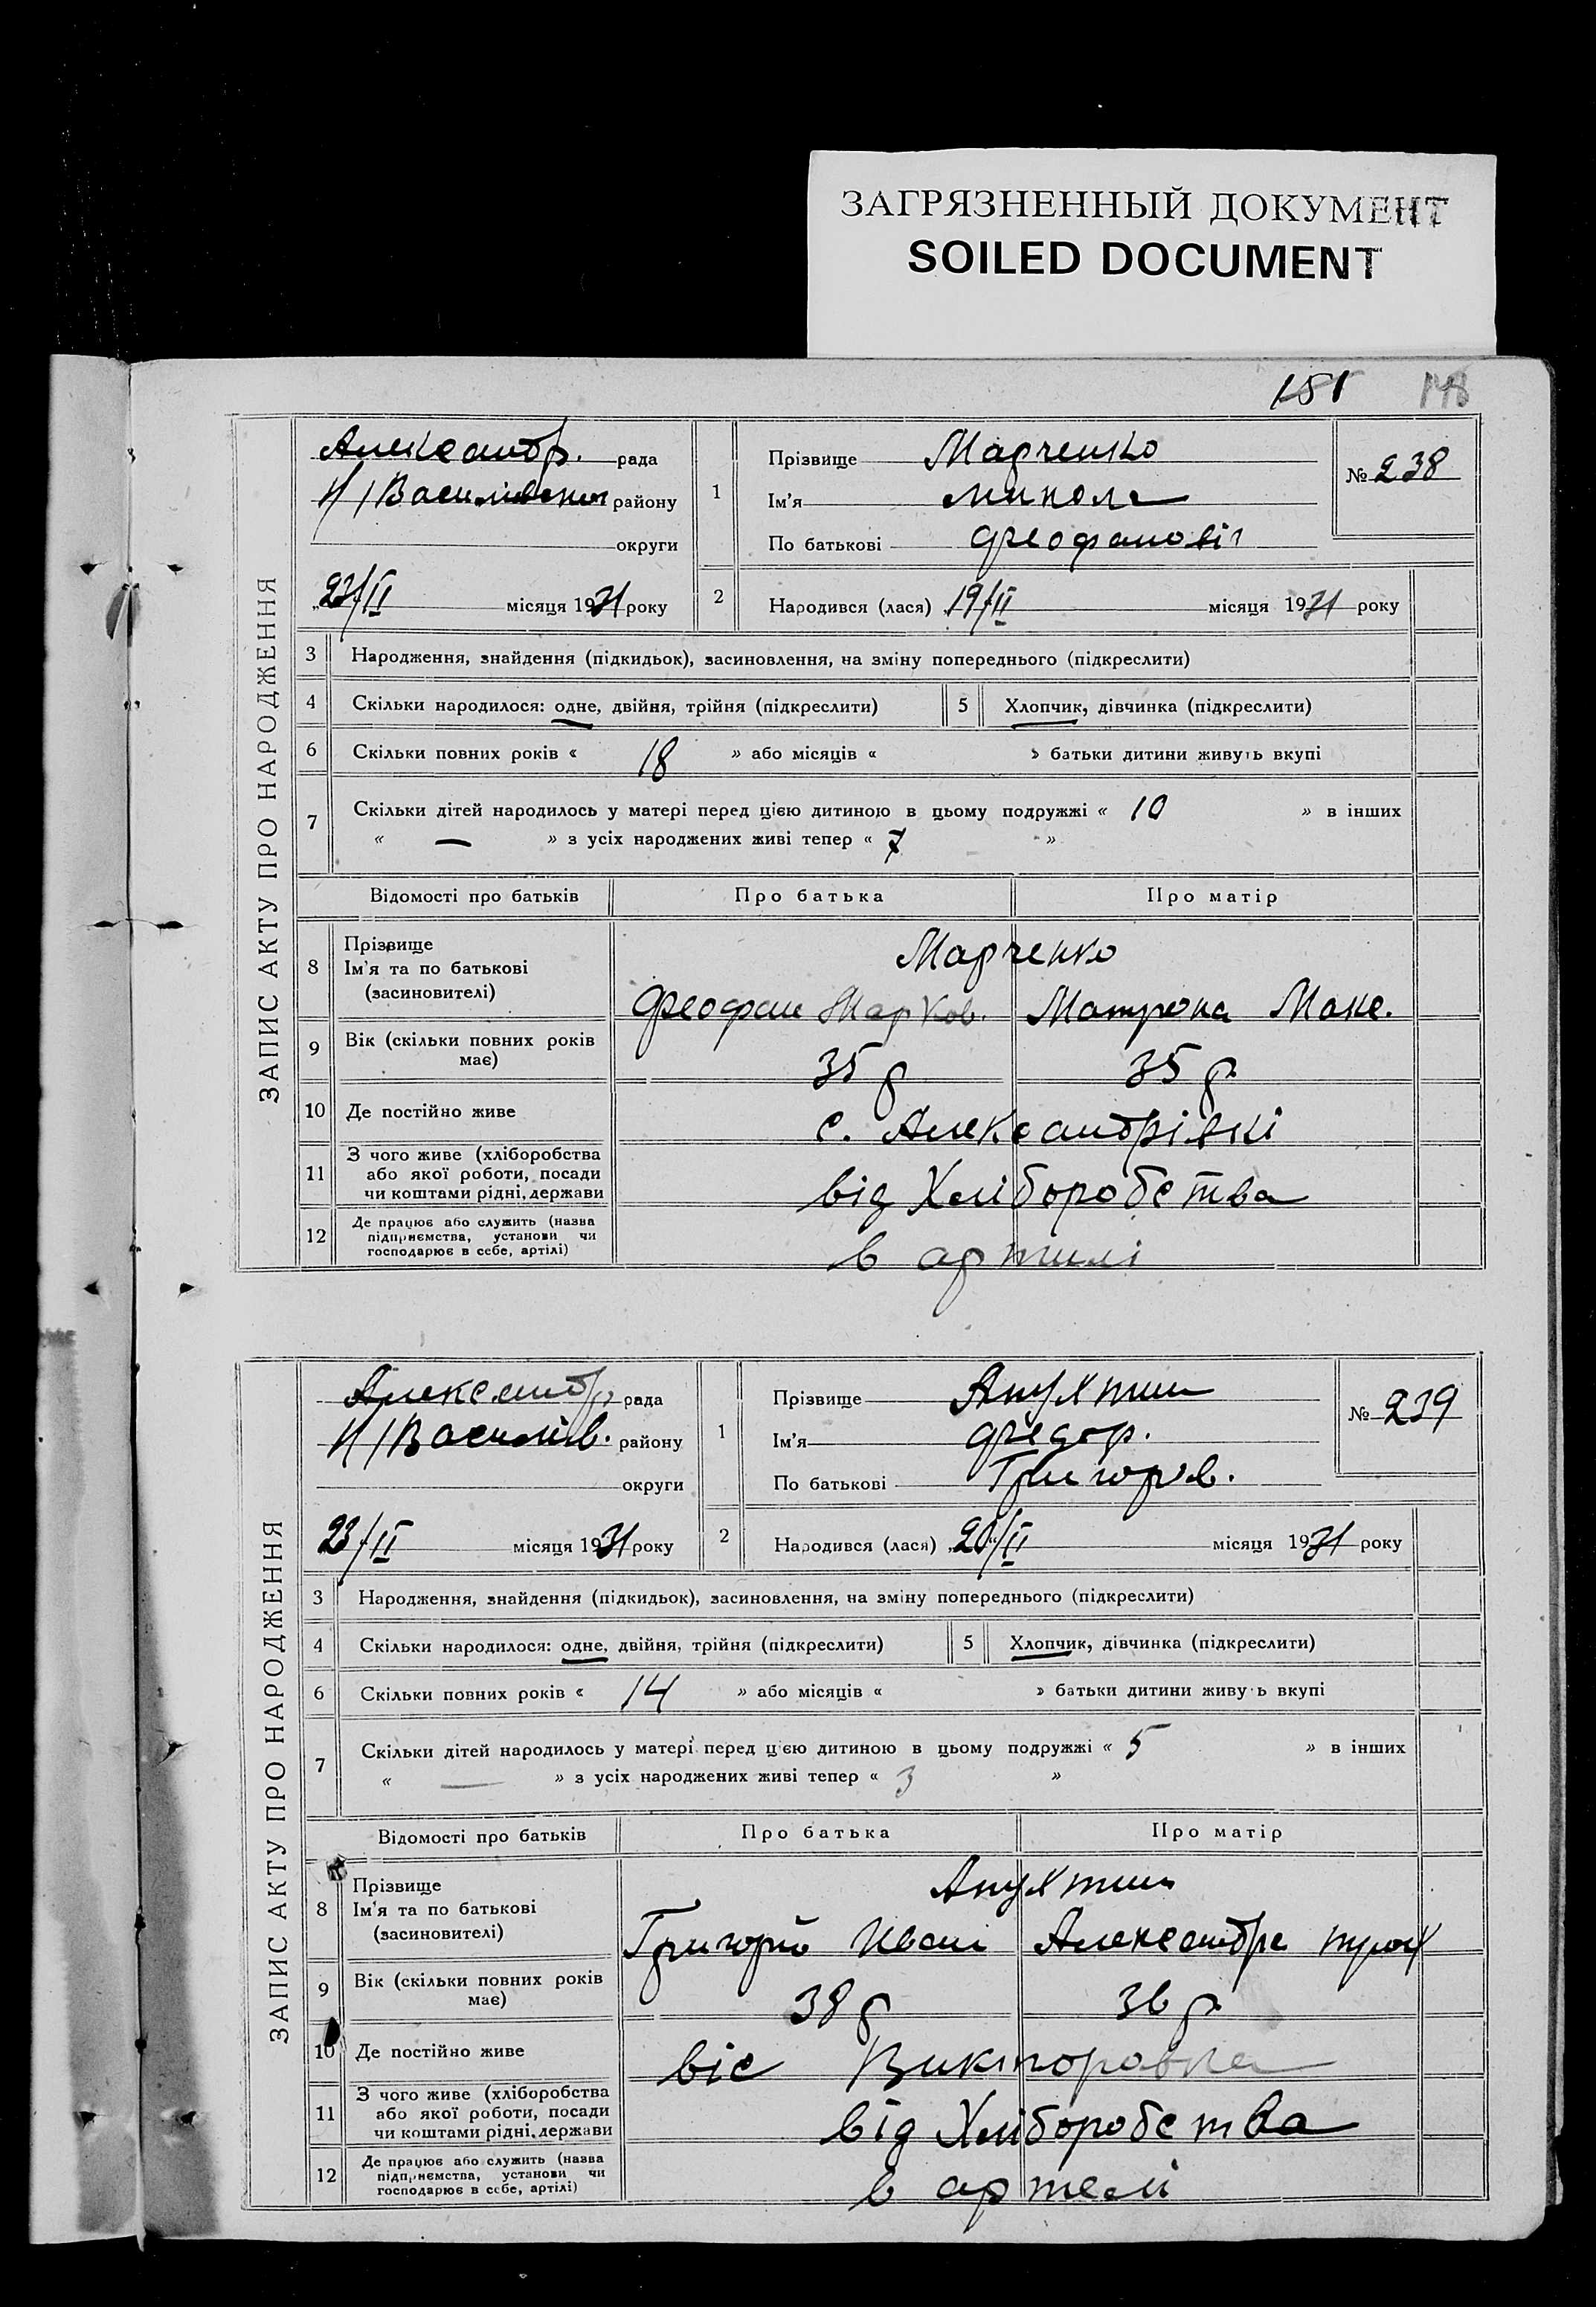 ЗАГРЯЗНЕННЫЙ ДОКУМЕНТ
SOILED DOCUMENT
151 148
ЗАПИС АКТУ ПРО НАРОДЖЕННЯ
Александр. рада
Н/Василівського району
округи
23/II місяця 1931 року
1
Прізвище Марченко
Ім'я Микола
По батькові Феофановіч
№ 238
2 Народився (лася) 19/II місяця 1931 року
3 Народження, знайдення (підкидьок), засиновлення, на зміну попереднього (підкреслити)
4 Скільки народилося: одне, двійня, трійня (підкреслити) 5 Хлопчик, дівчинка (підкреслити)
6 Скільки повних років « 18 » або місяців « » батьки дитини живуть вкупі
7 Скільки дітей народилось у матері перед цією дитиною в цьому подружжі « 10 » в інших
« — » з усіх народжених живі тепер « 7 »
Відомості про батьків Про батька Про матір
8 Прізвище Марченко
Ім'я та по батькові
(засиновителі) Феофан Марков. Матрона Маке.
9 Вік (скільки повних років має) 35 р 35 р.
10 Де постійно живе с. Александрівкі
11 З чого живе (хліборобства
або якої роботи, посади
чи коштами рідні, держави від Хліборобства
12 Де працює або служить (назва
підприємства, установи чи
господарює в себе, артілі) в артилі
ЗАПИС АКТУ ПРО НАРОДЖЕННЯ
Александр. рада
Н/Василів. району
округи
23/II місяця 1931 року
1
Прізвище Апухтин
Ім'я Федор.
По батькові Григоров.
№ 239
2 Народився (лася) 20/II місяця 1931 року
3 Народження, знайдення (підкидьок), засиновлення, на зміну попереднього (підкреслити)
4 Скільки народилося: одне, двійня, трійня (підкреслити) 5 Хлопчик, дівчинка (підкреслити)
6 Скільки повних років « 14 » або місяців « » батьки дитини живуть вкупі
7 Скільки дітей народилось у матері перед цією дитиною в цьому подружжі « 5 » в інших
« — » з усіх народжених живі тепер « 3 »
Відомості про батьків Про батька Про матір
8 Прізвище Апухтин
Ім'я та по батькові
(засиновителі) Григорій Иван Александра Трох
9 Вік (скільки повних років має) 38 р 36 р.
10 Де постійно живе віс Викторовка
11 З чого живе (хліборобства
або якої роботи, посади
чи коштами рідні, держави від Хліборобства
12 Де працює або служить (назва
підприємства, установи чи
господарює в себе, артілі) в артелі